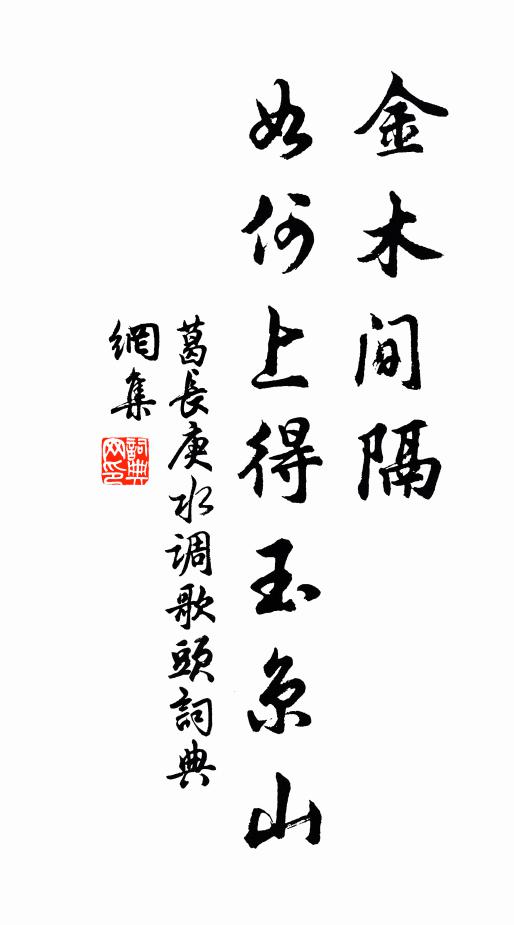 金木間隔
如何上得玉京山
葛長庚水调歌頭詞典
網集
詞典
网印